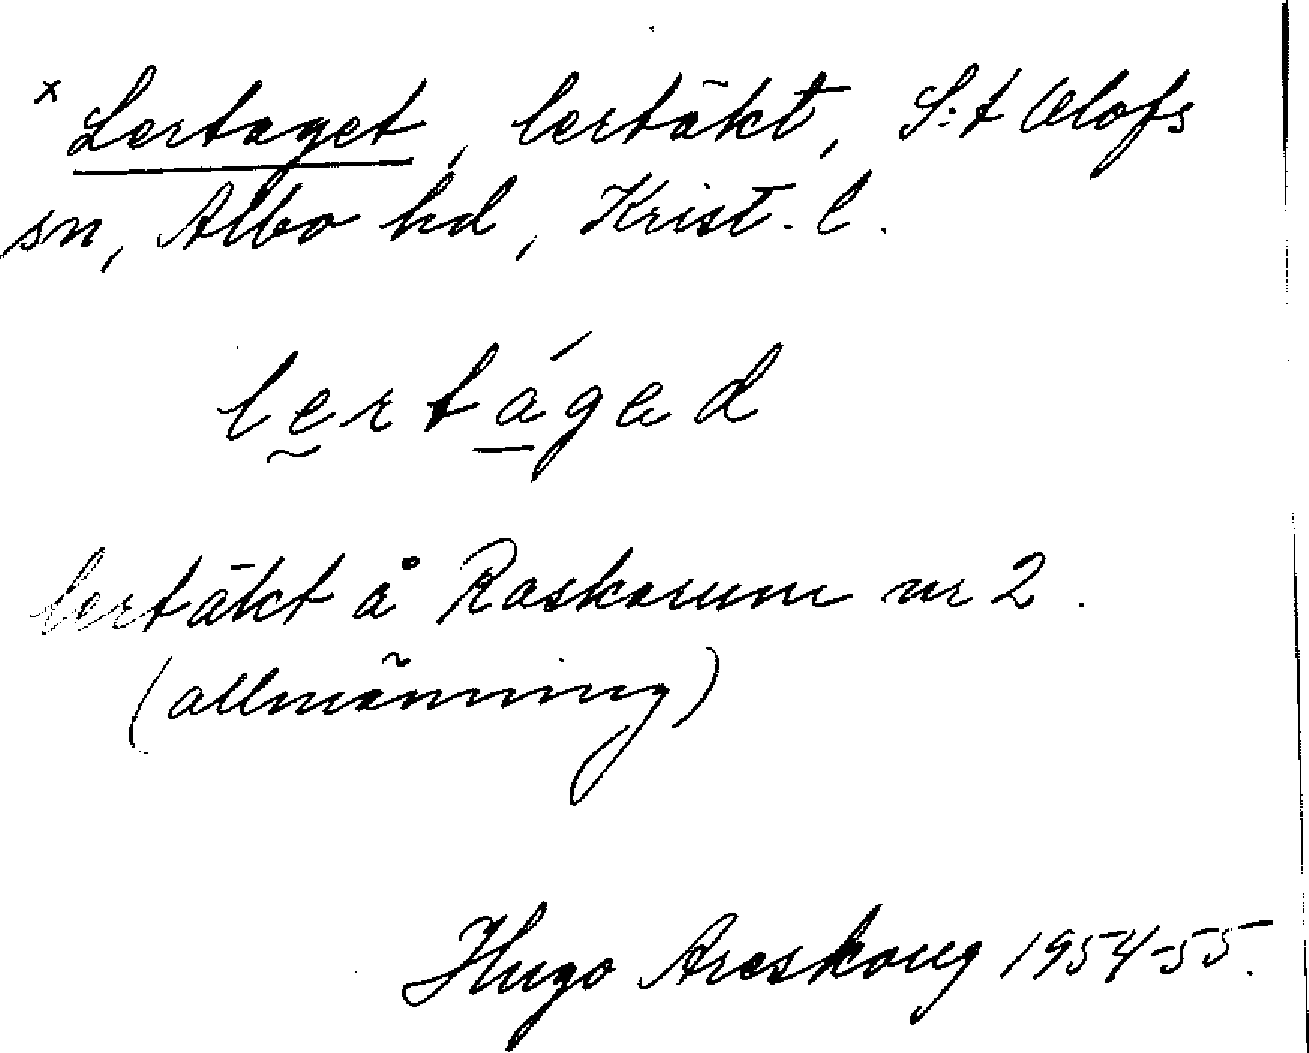 x Lertaget, lertäkt, S:t Olofs
sn, Albo hd, Krist. l.
lertágad
lertäkt å Raskarum nr 2.
(allmänning)
Hugo Areskoug 1954-55.